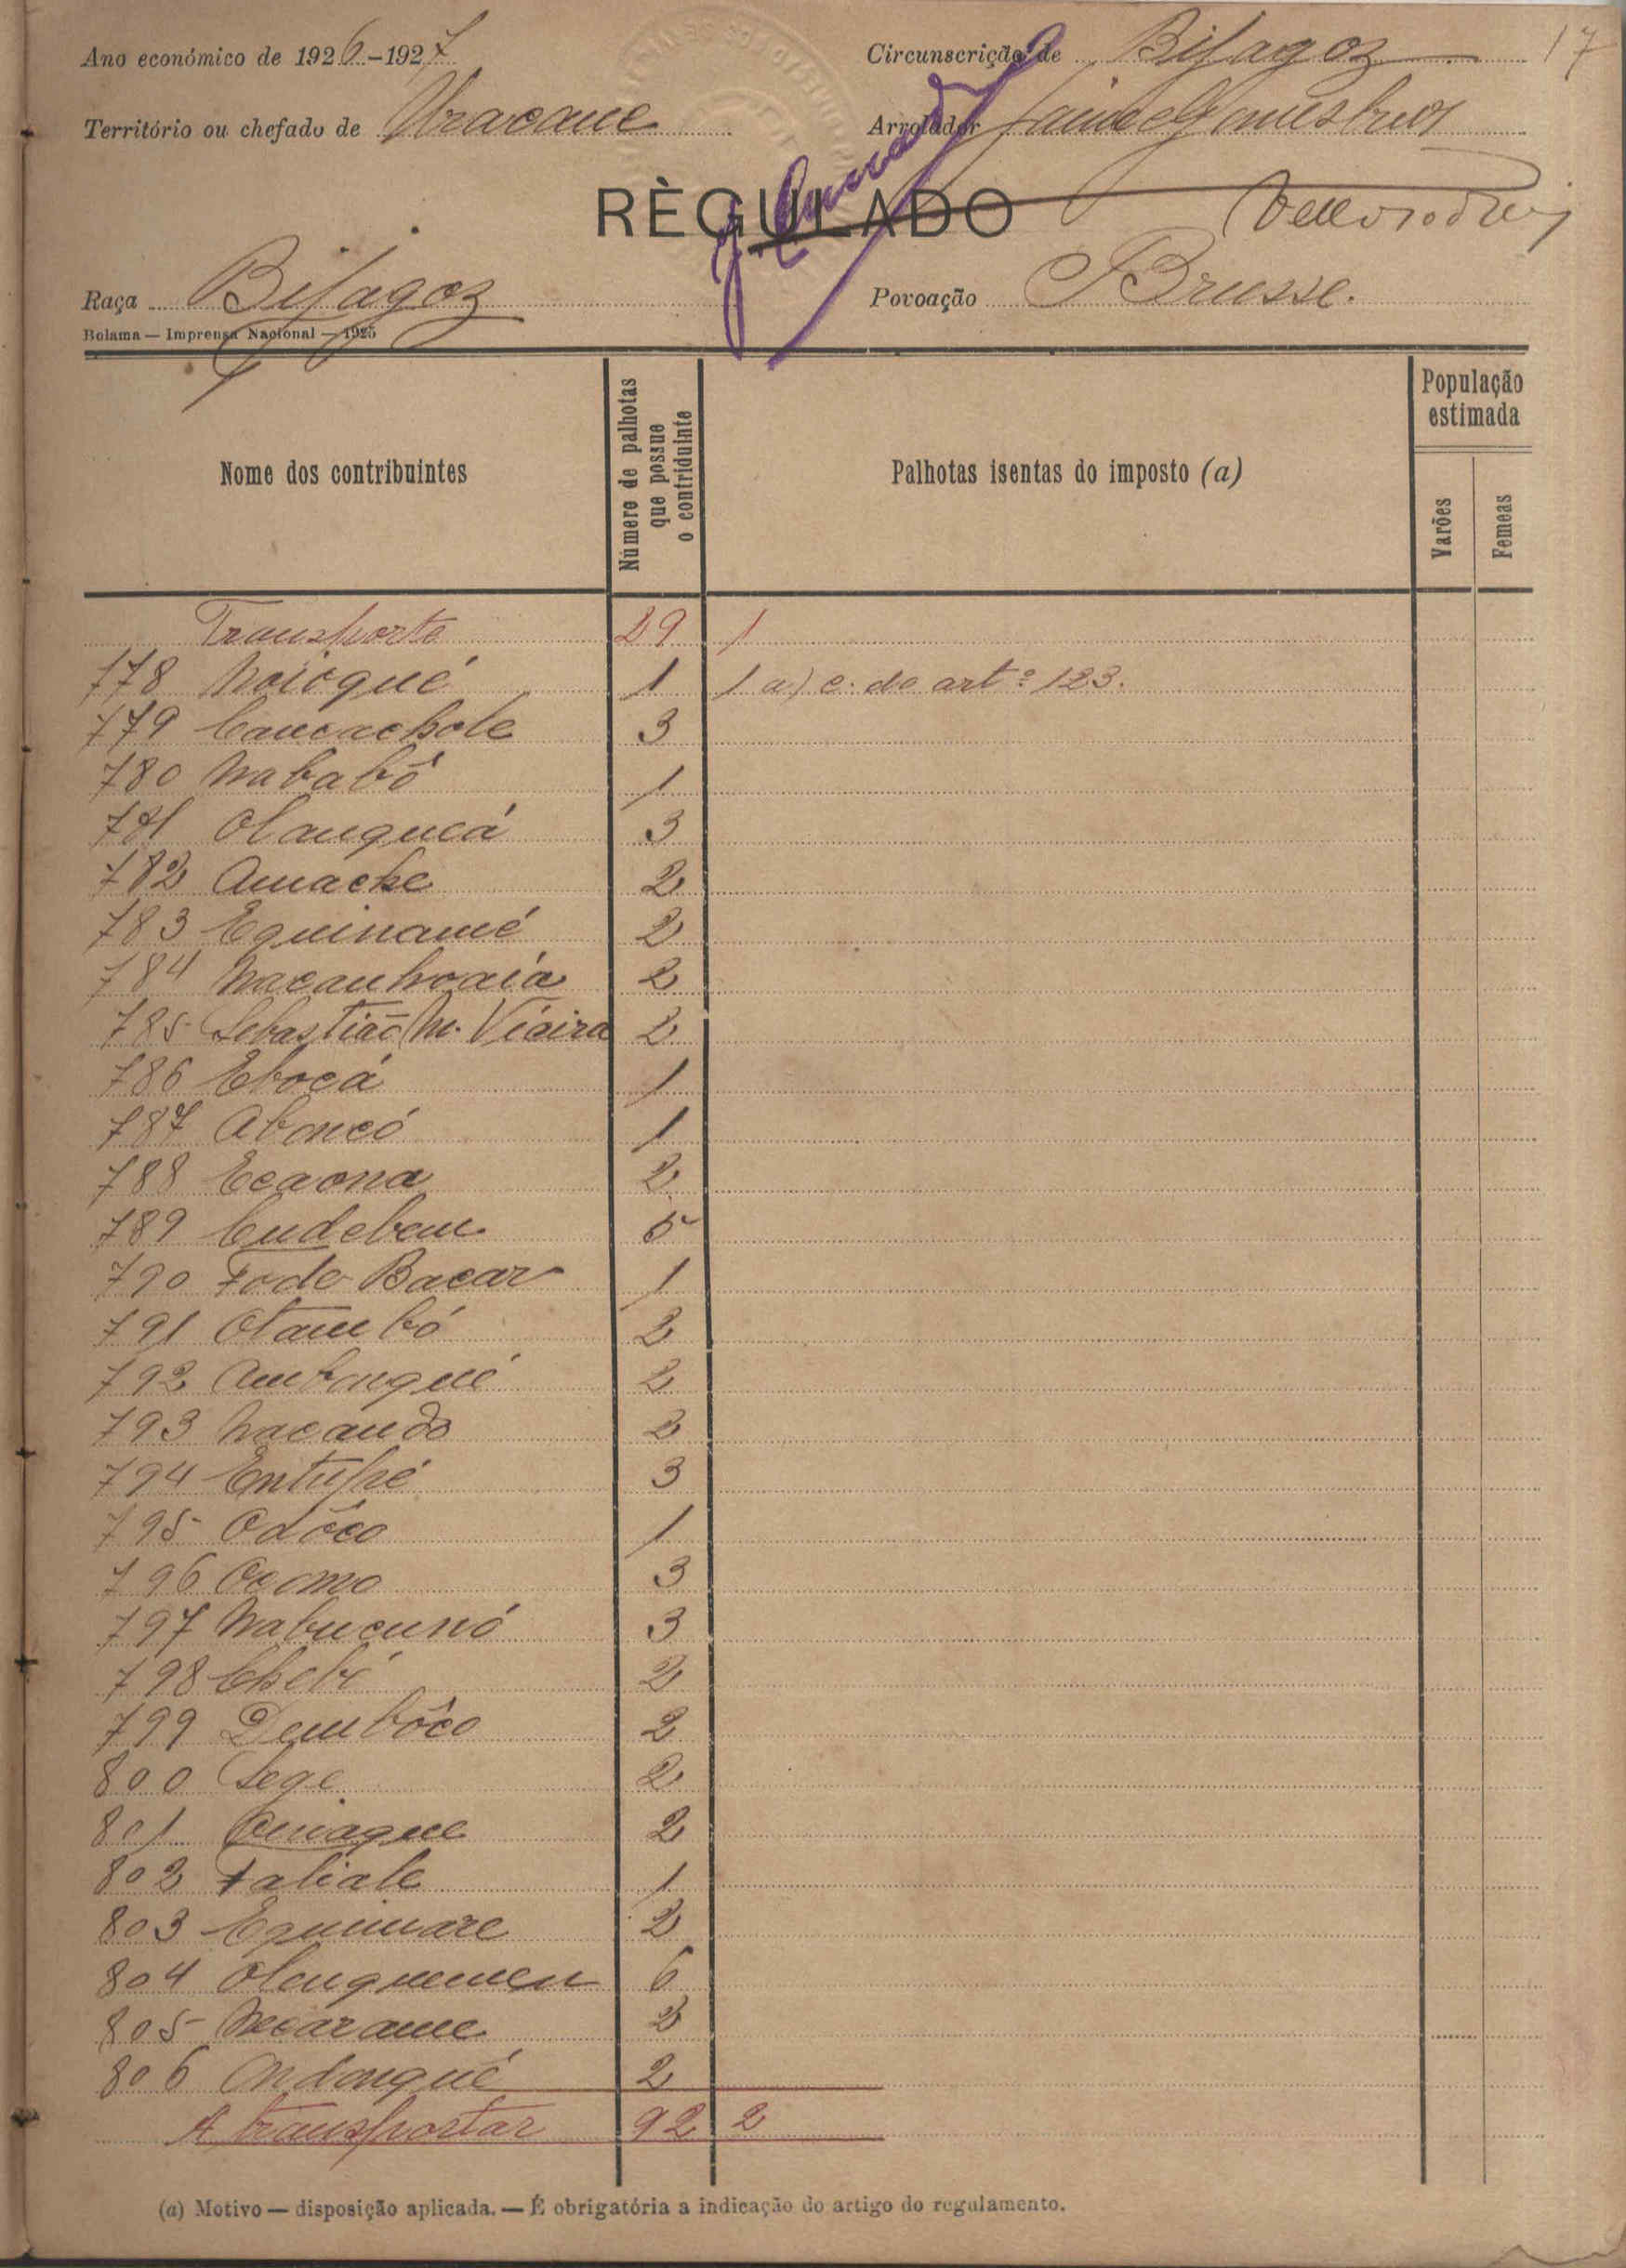 17
Ano económico de 1926-1927
Circunscrição de Bijagoz
Território ou chefado de Uracane
Arrolador
RÈGULADO
Raça Bijagoz
Povoação Brusse.
Bolama — Imprensa Nacional — 1925
Nome dos contribuintes
Número de palhotas que possue o contriduinte
Palhotas isentas do imposto (a)
População estimada
Varões
Femeas
Transporte 29 1
178 Naióqué 1 1 a) c. do artº 123.
779 Cancachole 3
780 Nababô 1
781 Olauquecá 3
782 Amache 2
783 Equinamé 2
784 Nacanhoaia 2
785 Sebastião M. Viaira 2
786 Ebocá 1
787 Aboncó 1
788 Ecaona 2
789 Cudebem 5
790 Fode Bacar 1
791 Otambó 2
792 Ambonqué 2
793 Nacando 2
794 Entupé 3
795 Odôco 1
796 Ocomo 3
797 Nabucunó 3
798 Chebi 2
799 Dembôco 2
800 Sege 2
801 2
802 Faliale 1
803 Equimare 2
804 6
805 Necarame 2
806 Ondonqué 2
A transportar 92 2
(a) Motivo — disposição aplicada. — É obrigatória a indicação do artigo do regulamento.